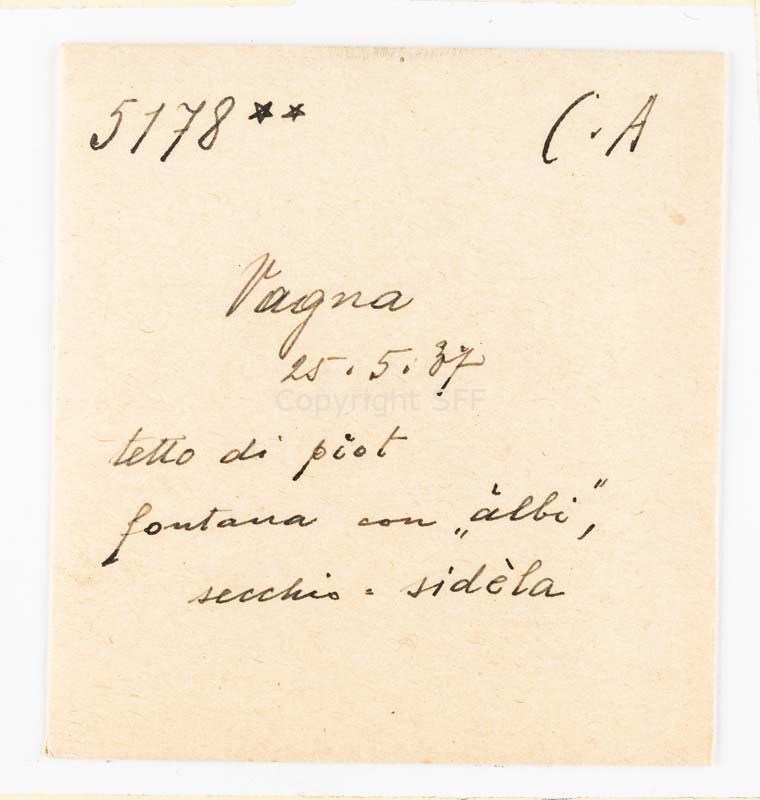 5178** C.A
Vagna
25.5.37
Copyright SFF
tetto di piot
fontana con „àlbi",
secchio = sidèla